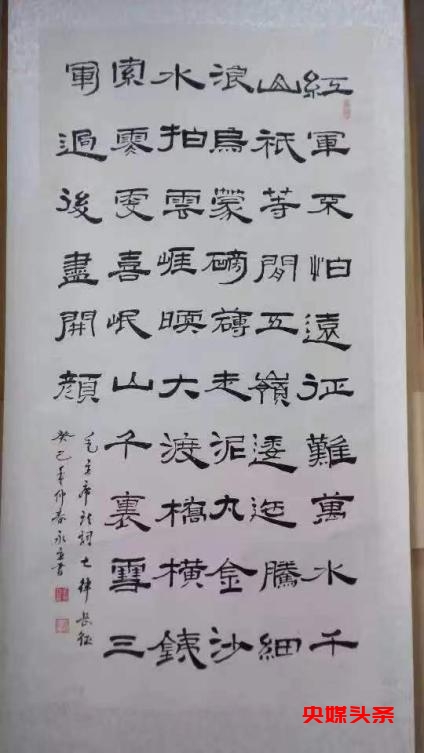 紅軍不怕遠征難萬水千
山祇等閒五嶺逶迤騰細
浪烏蒙磅礴走泥丸金沙
水拍雲崕暖大渡橋橫銕
索寒更喜岷山千裏雪三
軍過後盡開顔
毛主席詩詞七律長征
癸巳年仲春永書
央媒头条